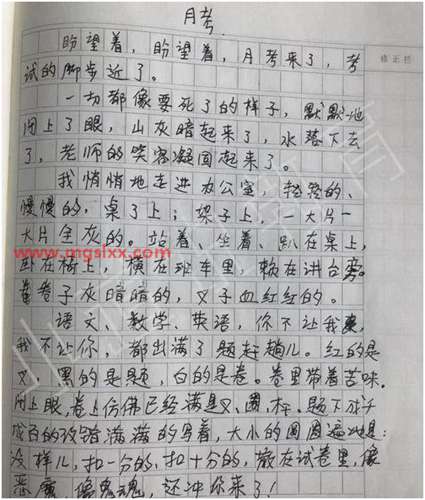 月考
盼望着，盼望着，月考来了，考
修正栏
试的脚步近了。
一切都像要死了的样子，默默地
闭上了眼，山灰暗起来了，水落下去
了，老师的笑容凝固起来了。
我悄悄地走进办公室，轻轻的、
慢慢的，桌子上；架子上，一大片一
大片全灰的。站着、坐着、趴在桌上，
www.mgslxx.com
卧在椅上，横在班车里，躺在讲台旁。
卷子灰暗暗的，叉子血红红的。
语文、数学、英语，你不让我，
我不让你，都出满了题赶趟儿。红的是
叉，黑的是题，白的是卷。卷里带着苦味，
闭上眼，卷上仿佛已经满是叉、圈、杠。题下成千
成百的改错满满的写着，大小的圆圈遍地是：
没样儿，扣一分的，扣十分的，散在试卷里，像
恶魔，像鬼魂，还冲你来了！